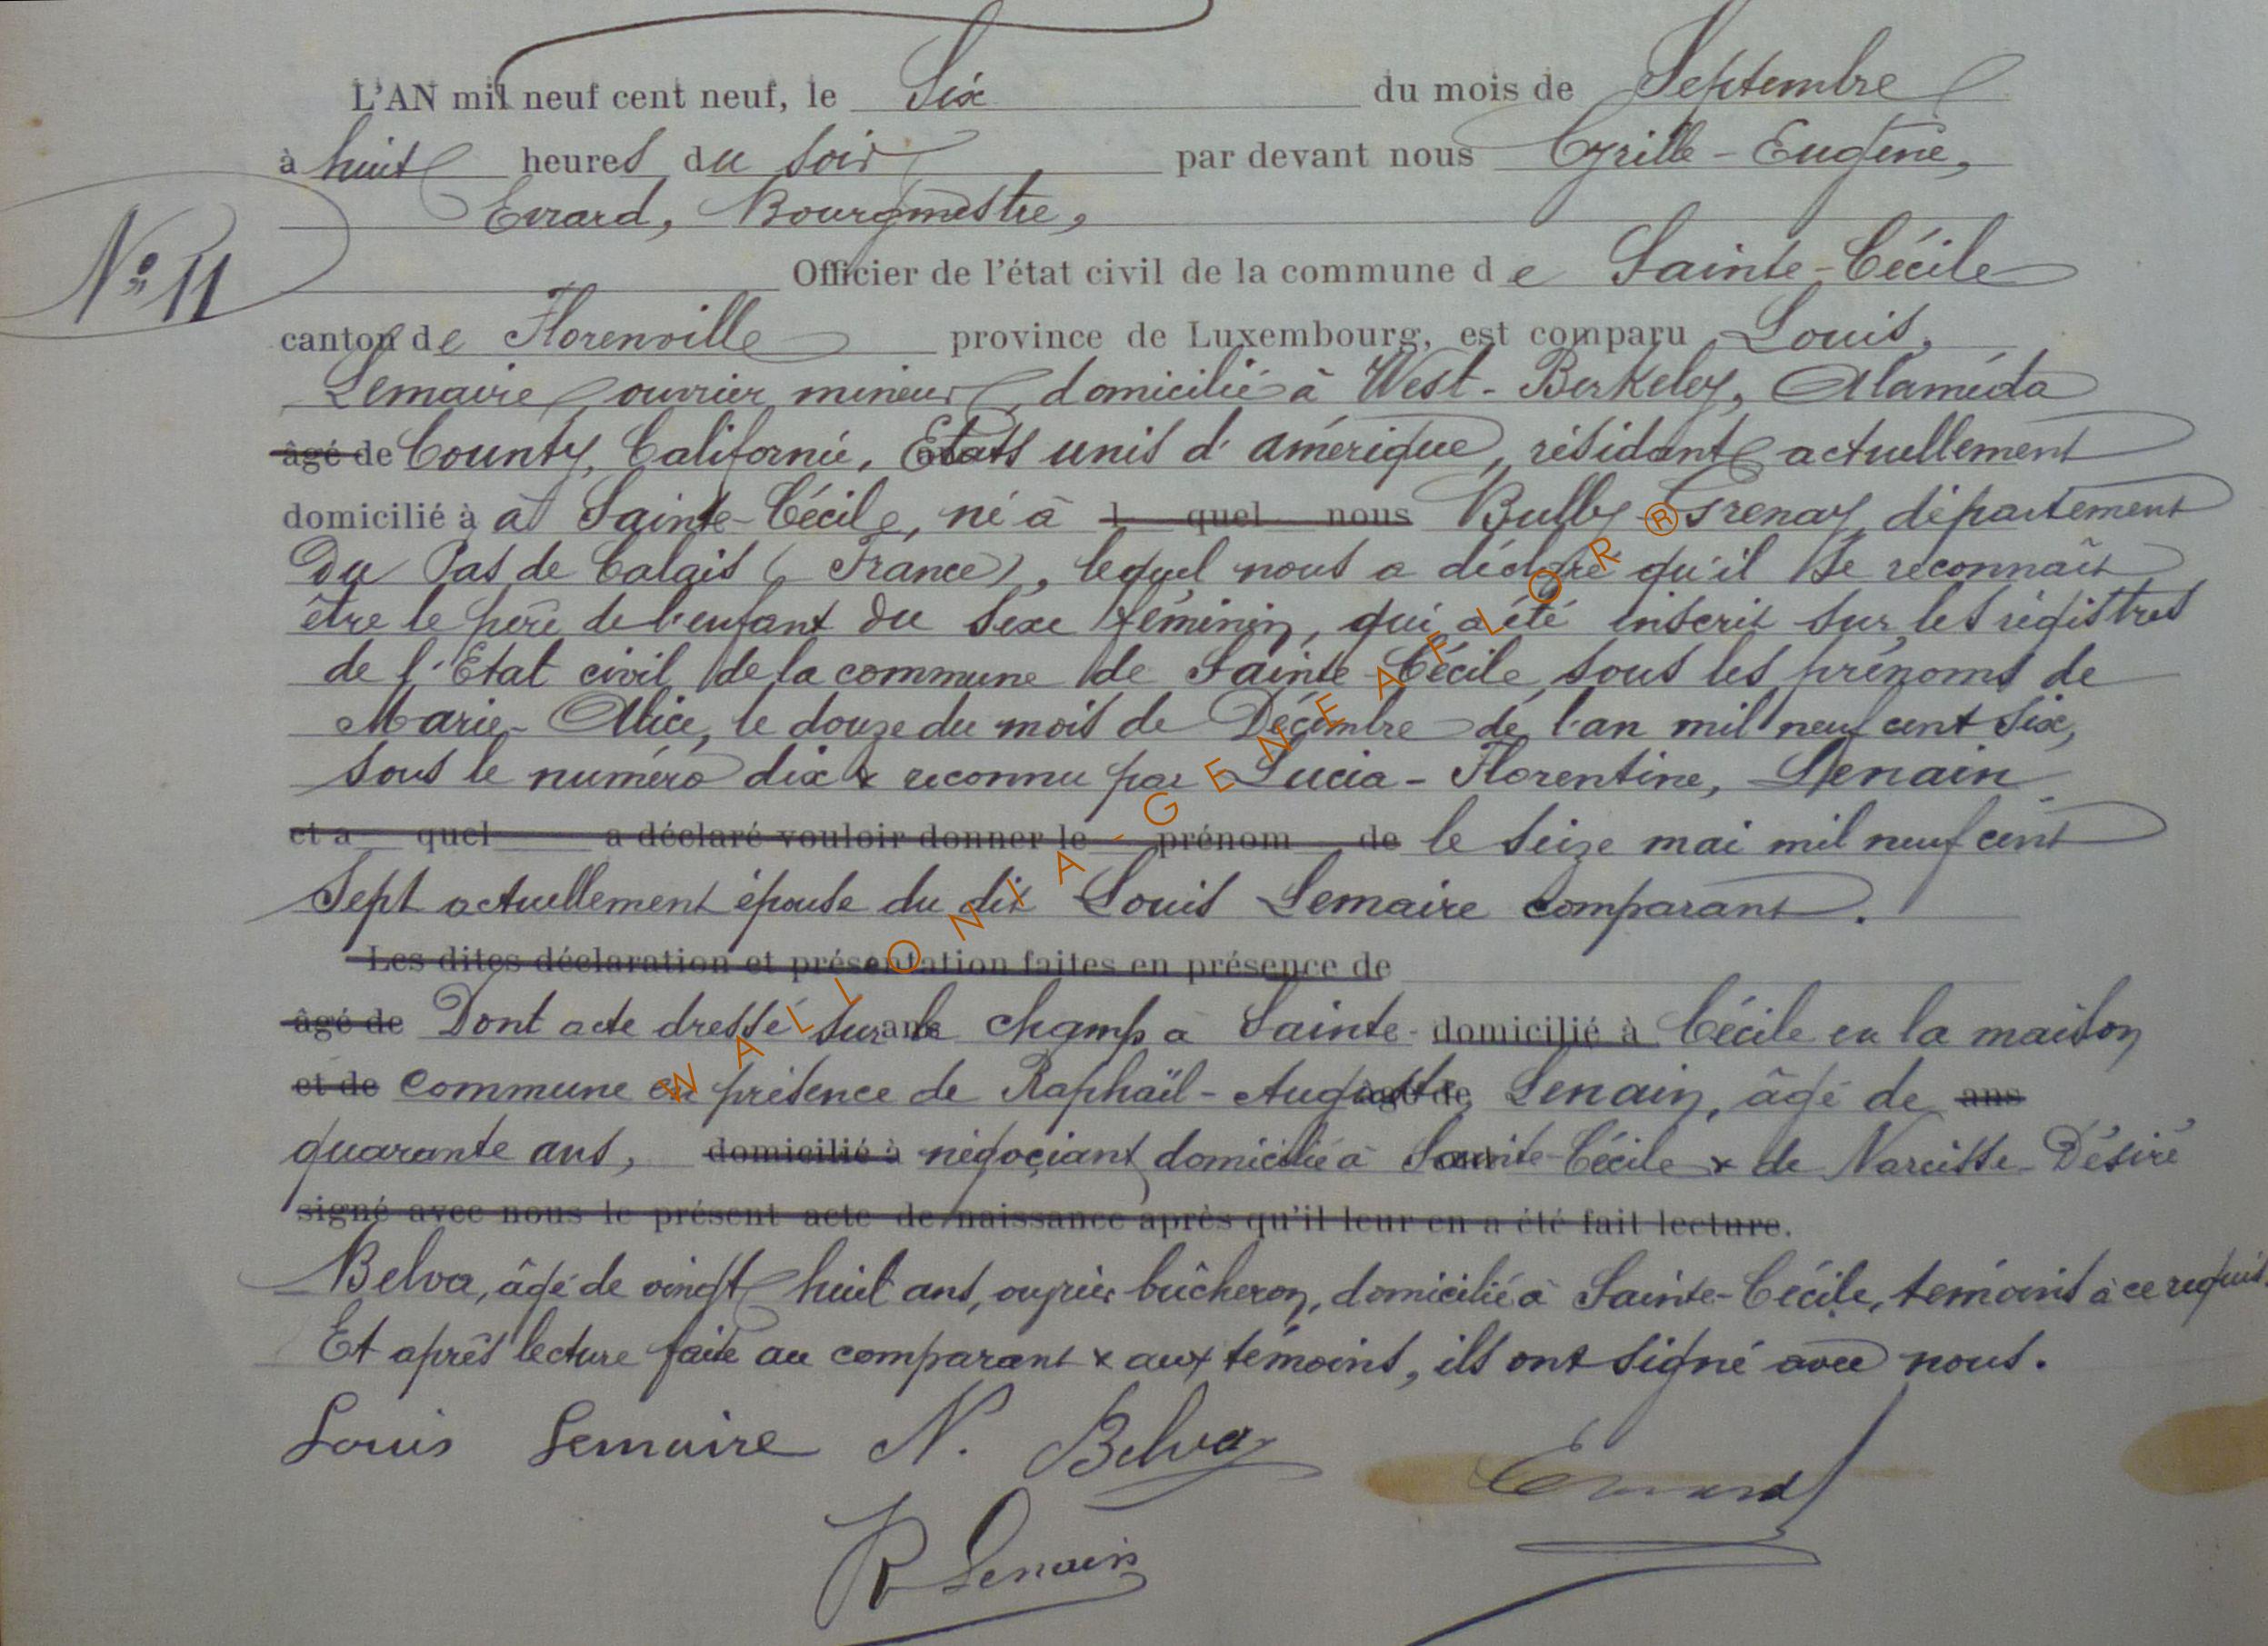 L'AN mil neuf cent neuf, le Six du mois de Septembre
à huit heures du soir par devant nous Cyrille-Eugène,
Evrard, Bourgmestre,
Officier de l'état civil de la commune de Sainte-Cécile
N° 11
canton de Florenville province de Luxembourg, est comparu Louis,
Lemaire ouvrier mineur, domicilié à West-Berkeley, Alaméda
âgé de County, Californie, Etats unis d'amérique, résidant actuellement
domicilié à à Sainte-Cécile, né à l quel nous Bully-Grenay, département
du Pas de Calais (France), lequel nous a déclaré qu'il se reconnaît
être le père de l'enfant du sexe féminin, qui a été inscrit sur les régistres
de l'Etat civil de la commune de Sainte Cécile sous les prénoms de
Marie-Alice, le douze du mois de Décembre de l'an mil neuf cent six,
sous le numéro dix & reconnu par Lucia-Florentine, Lenain
et a quel a déclaré vouloir donner le prénom de le seize mai mil neuf cent
sept actuellement épouse du dit Louis Lemaire comparant.
Les dites déclaration et présentation faites en présence de
âgé de Dont acte dressé sur ans le champ à Sainte- domicilié à Cécile en la maison
et de commune en présence de Raphaël-Auguste, âgé de Lenain, âgé de ans
quarante ans, domicilié à négociant domicilié à Sainte-Cécile & de Narcisse-Désiré
signé avec nous le présent acte de naissance après qu'il leur en a été fait lecture.
Belva, âgé de vingt huit ans, ouvrier bûcheron, domicilié à Sainte-Cécile, témoins à ce requis.
Et après lecture faite au comparant & aux témoins, ils ont signé avec nous.
Louis Lemaire N. Belva
Evrard
R Lenain
WALLONIA-GENEAFLOR®